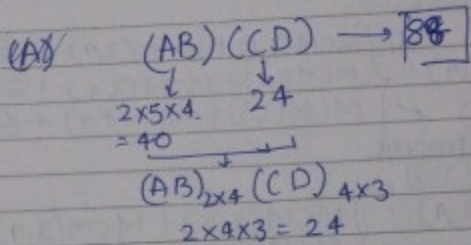 (A) (AB)(CD) → 88
2×5×4 24
= 40
(AB)2×4 (CD) 4×3
2×4×3 = 24